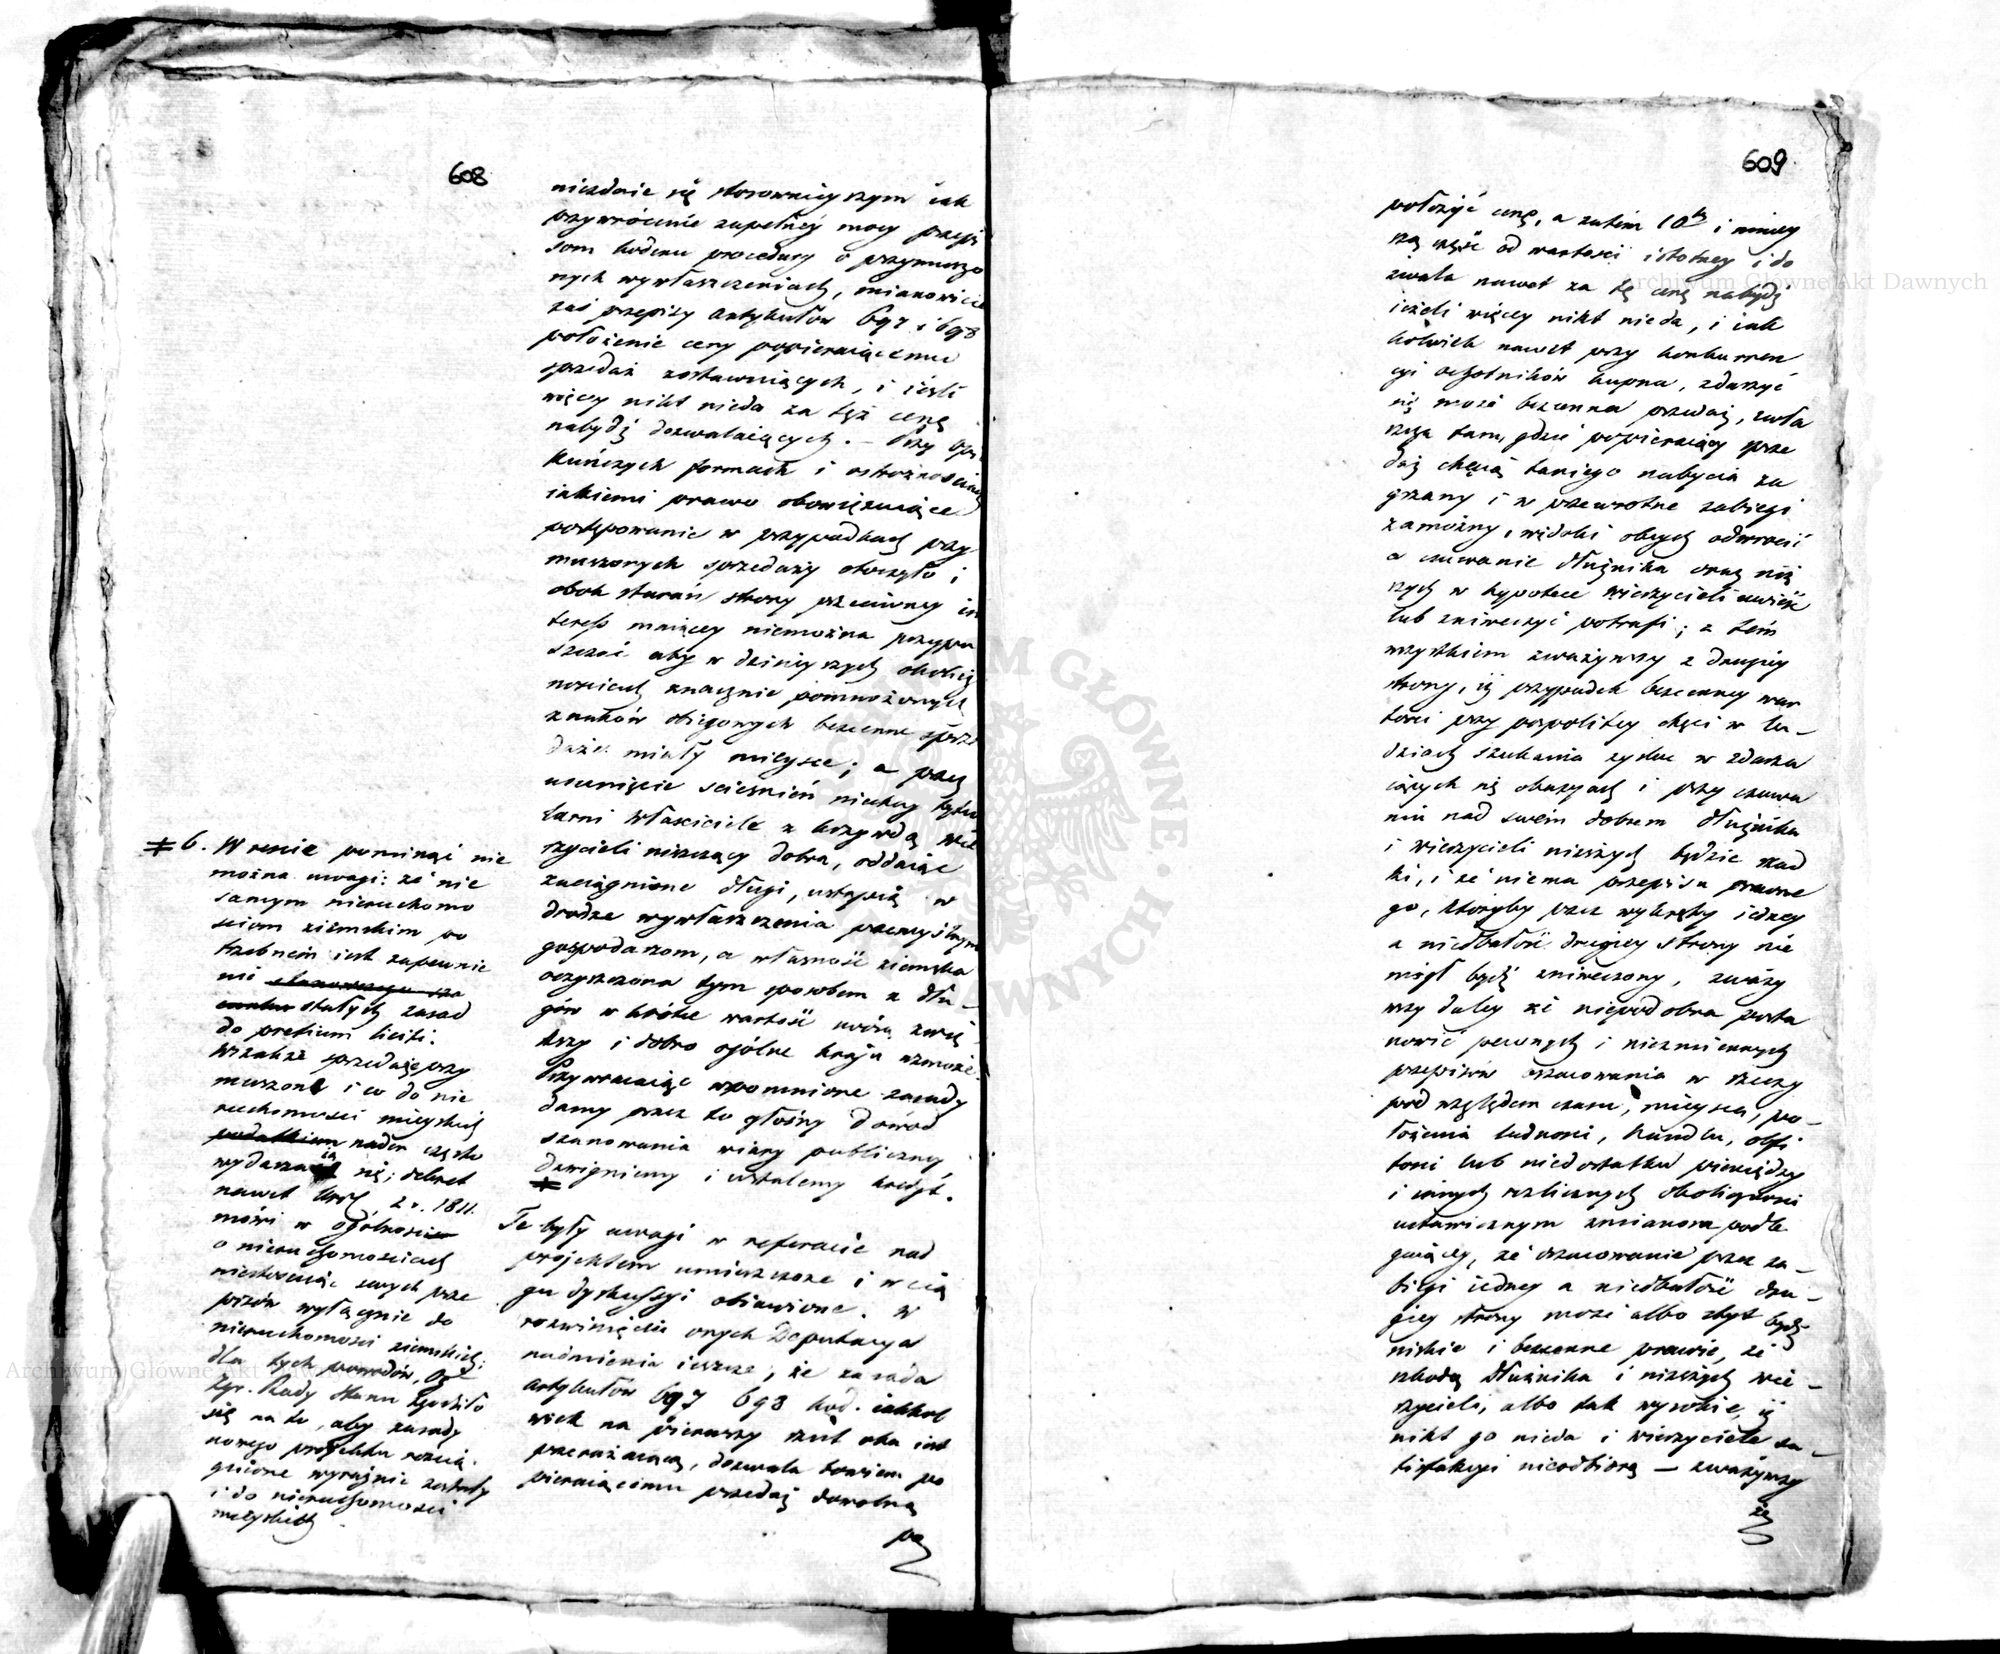 608
niezdaie się stosownieyszym iak
przywrócenie zupełney mocy przepi
som kodexu procedury o przymuszo
nych wywłaszczeniach, mianowicie
zaś przepisy artykułów 697 i 698
położenie ceny popieraiącemu
sprzedaż zostawuiących, i ieśli
więcey nikt nieda za tęż cenę
nabydź dozwalaiących. – Przy opie
kuńczych formach i ostrożnościach
iakiemi prawo obowiązuiące
postępowanie w przypadkach przy
muszonych sprzedaży otoczyło i
obok starań strony przeciwney in
teress maiącey niemożna przypu
szczać aby w dzisieyszych okolicz
nościach znacznie pomnożonych
znaków obiegowych bezcenne sprze
daże miały mieysce; a przez
usunięcie ścieśnień niechay tytu
larni właściciele z krzywdą wie
rzycieli niszczący dobra, oddaiąc
zaciągnione długi, ustąpią w
drodze wywłaszczenia przemyślnym
gospodarzom, a własność ziemska
oczyszczona tym sposobem z dłu–
gów w krótce wartość swoią zwię
kszy i dobro ogólne kraju wzmoże.
Przywracaiąc wspomnione zasady
damy przez to głośny dowód
szanowania wiary publiczney,
dzwigniemy i ustalemy kredyt.
#
# 6. W resie pominąć nie
można uwagi: że nie
samym nieruchomo
sciom ziemskim po
trzebnem iest zapewnie
nie stanowczego sza
cunku stałych zasad
do pretium liciti.
Wszakże przedaże przy
muszone i co do nie
ruchomości mieyskiey
podatkiem nader często
wydarzaią się; dekret
nawet Król 2 r. 1811.
mówi w ogólności
o nieruchomościach
niestosuiąc swych prze
pisów wyłącznie do
nieruchomości ziemskiey;
dla tych powodów, Ogól
Zgr. Rady Stanu zgodziło
się na to, aby zasady
nowego projektu rozcią
gnione wyraźnie zostały
i do nieruchomości
mieyskich
Te były uwagi w referacie nad
projektem umieszczone i w cią
gu dyskussyi obiawione. W
rozwinięciu onych Deputacya
nadmienia ieszcze, że zasada
artykułów 697 698 kod. iakkol
wiek na pierwszy rzut oka iest
przerażaiącą, dozwala bowiem po
pieraiącemu przedaż dowolną
po
609
położyć cenę, a zatem 10tą i mniey
szą część od wartości istotney i do
zwala nawet za tę cenę nabydź
ieżeli więcey nikt nieda, i iak
kolwiek nawet przy konkurren
cyi ochotników kupna, zdarzyć
się może bezcenna przedaż, zwła
szcza tam, gdzie popieraiący prze
daż chęcią taniego nabycia za
grzany i w przewrotne zabiegi
zamożny, widoki obcych odwrócić
a czuwanie dłużnika oraz niż
szych w hypotece wierzycieli uwieść
lub zniweczyć potrafi; z tem
wszystkiem zważywszy z drugiey
strony, iż przypadek bezcenney war
tości przy pospolitey chęci w lu–
dziach szukania zysku w zdarza
iących się okazyach i przy czuwa
niu nad swem dobrem dłużnika
i wierzycieli nieszych będzie rzad
ki, i że niema przepisu prawne
go, któryby przez wykręty iedney
a niedbałość drugiey strony nie
mógł bydź zniweczony, zważy
wszy daley że niepodobna posta
nowić pewnych i niezmiennych
przepisów oszacowania w rzeczy
pod względem czasu, mieysca, po–
łożenia ludności, handlu, obfi
tości lub niedostatku pieniędzy
i innych rozlicznych okoliczności
ustawicznym zmianom podle
gaiącey, że oszacowanie przez za–
biegi iedney a niedbałość dru–
giey strony może albo zbyt bydź
niskie i bezcenne prawie, ze
szkodą dłużnika i niższych wie–
rzycieli, albo tak wysokie, iż
nikt go nieda i wierzyciele sa–
tisfakcyi nieodbiorą – zważywszy
że